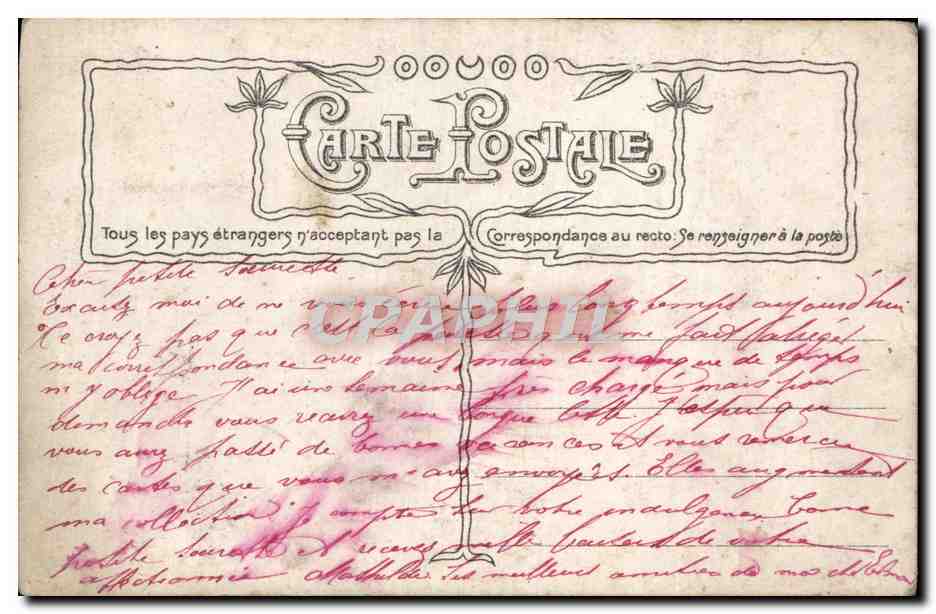 CARTE POSTALE
Tous les pays étrangers n'acceptant pas la Correspondance au recto: Se renseigner à la poste
CPAPHIL
petite sœurette
excusez moi de ne vous longtemps aujourd'hui
Ne croyez pas que c'est la qui me fait abréger
ma correspondance avec vous mais le manque de temps
m'y oblige J'ai une semaine très chargée mais pour
vous recevrez une longue lettre J'espère que
vous avez passé de bonnes vacances et vous remercie
des cartes que vous m'avez envoyés. Elles augmentent
ma collection je compte sur votre indulgence bonne
petite sœurette et recevez mille baisers de votre
affectionnée Mathilde Les meilleurs amitiés de